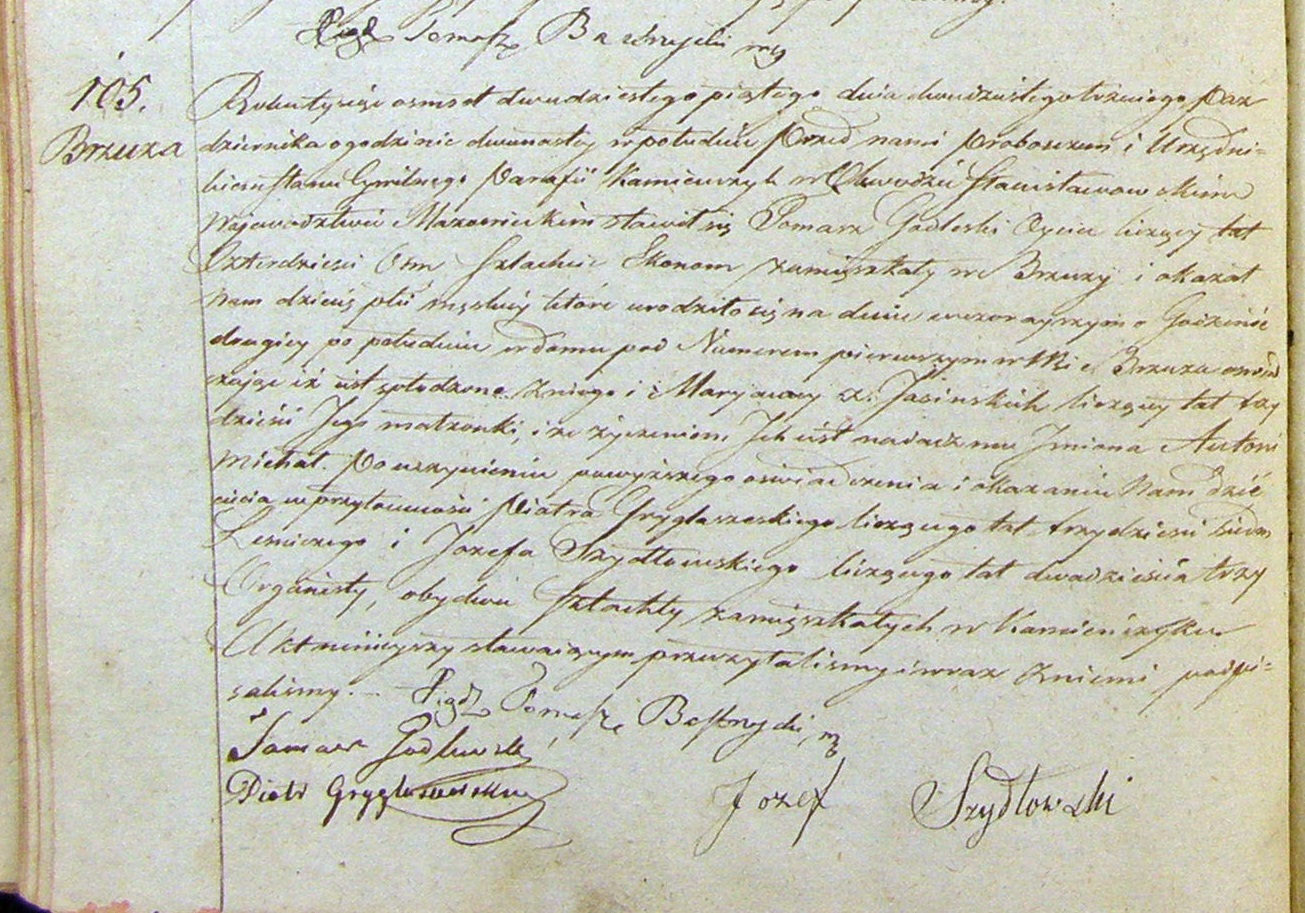 Tomasz
105.
Brzuza
Roku tysiąc osmset dwudziestego piątego dnia dwudziestego trzeciego Paz
dziernika o godzinie dwunastey w południe Przed nami Proboszczem i Urzędni=
kiem Stanu Cywilnego Parafii Kamieńczyk w Obwodzie Stanisławowskim
Wojewodztwie Mazowieckim stawił się Tomasz Godleski Życia liczący lat
Czterdzieści Ośm Szlachcic Ekonom zamięszkały w Brzuzy i okazał
Nam dziecię płci męskiey które urodziło się na dniu wczorayszym o Godzinie
drugiey po południu w domu pod Numerem pierwszym w Wsi Brzuza oswiad
czając iż iest spłodzone z niego i Maryanny z Jasińskich liczącey lat trzy
dzieści Jego małzonki, i ze życzeniem Jch iest nadać mu Jmiona Antoni
Michał. Po uczynieniu powyższego oświadczenia i okazaniu Nam dzie
cięcia w przytomności Piotra Gryglaszeskiego liczącego lat trzydzieści siedm
Lesniczego i Jozefa Szydłowskiego liczącego lat dwadzieścia trzy
Organisty, obydwu Szlachty zamięszkałych w Kamieńczyku
Akt ninieyszy stawaiącym przeczytalismy i wraz z niemi podpi=
salismy.
Tomasz
Tomasz Godlewski
Piotr
Jozef Szydłowski